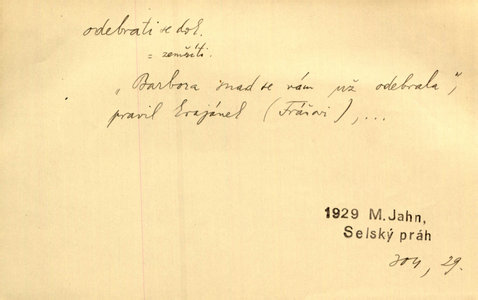 odebrati se dok.
= zemříti.
„Barbora snad se vám už odebrala",
pravil Krajánek (Frášovi), ...
1929 M. Jahn,
Selský práh
29.